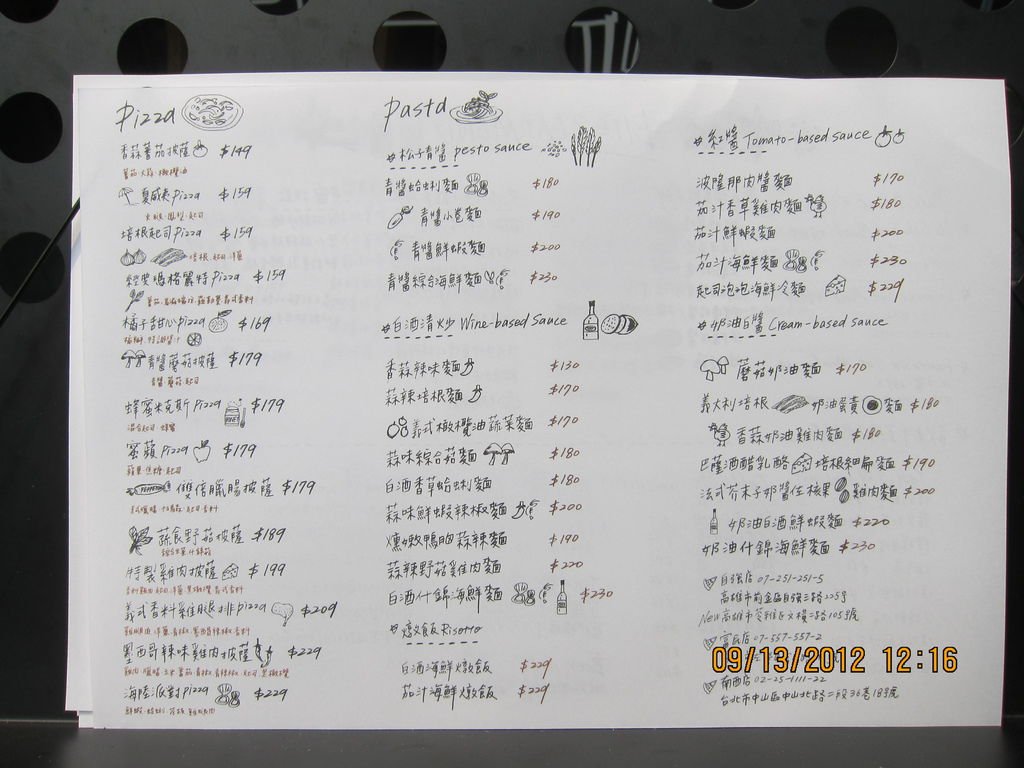 Pizza
香蒜蕃茄披薩 $149
蕃茄.大蒜.橄欖油
夏威夷Pizza $159
火腿.鳳梨.起司
培根起司Pizza $159
培根.起司.洋蔥
經典瑪格麗特Pizza $159
橘子甜心Pizza $169
青醬蘑菇披薩 $179
青醬.蘑菇.起司
蜂蜜米克斯Pizza $179
混合起司.蜂蜜
蜜蘋Pizza $179
蘋果.焦糖.起司
雙倍臘腸披薩 $179
蔬食野菇披薩 $189
特製雞肉披薩 $199
義式香料雞腿排pizza $209
墨西哥辣味雞肉披薩 $229
海陸派對Pizza $229
Pasta
#松子青醬 pesto sauce
青醬蛤蜊麵 $180
青醬小卷麵 $190
青醬鮮蝦麵 $200
青醬綜合海鮮麵 $230
#白酒清炒 Wine-based Sauce
香蒜辣味麵 $130
蒜辣培根麵 $170
義式橄欖油蔬菜麵 $170
蒜味綜合菇麵 $180
白酒香草蛤蜊麵 $180
蒜味鮮蝦辣椒麵 $200
燻嫩鴨胸蒜辣麵 $190
蒜辣野菇雞肉麵 $220
白酒什錦海鮮麵 $230
#燉飯 Risotto
白酒海鮮燉飯 $229
茄汁海鮮燉飯 $229
#紅醬 Tomato-based sauce
波隆那肉醬麵 $170
茄汁香草雞肉麵 $180
茄汁鮮蝦麵 $200
茄汁海鮮麵 $230
起司泡泡海鮮冷麵 $229
#奶油白醬 Cream-based sauce
蘑菇奶油麵 $170
義大利培根 奶油蛋黃 麵 $180
香蒜奶油雞肉麵 $180
巴薩酒醋乳酪 培根細扁麵 $190
法式芥末子奶醬佐核果 雞肉麵 $200
奶油白酒鮮蝦麵 $220
奶油什錦海鮮麵 $230
自強店 07-251-251-5
高雄市前金區自強三路225號
New高雄市苓雅區文橫二路105號
富民店 07-557-557-2
南西店 02-25-1111-22
台北市中山區中山北路二段36巷18號
09/13/2012 12:16